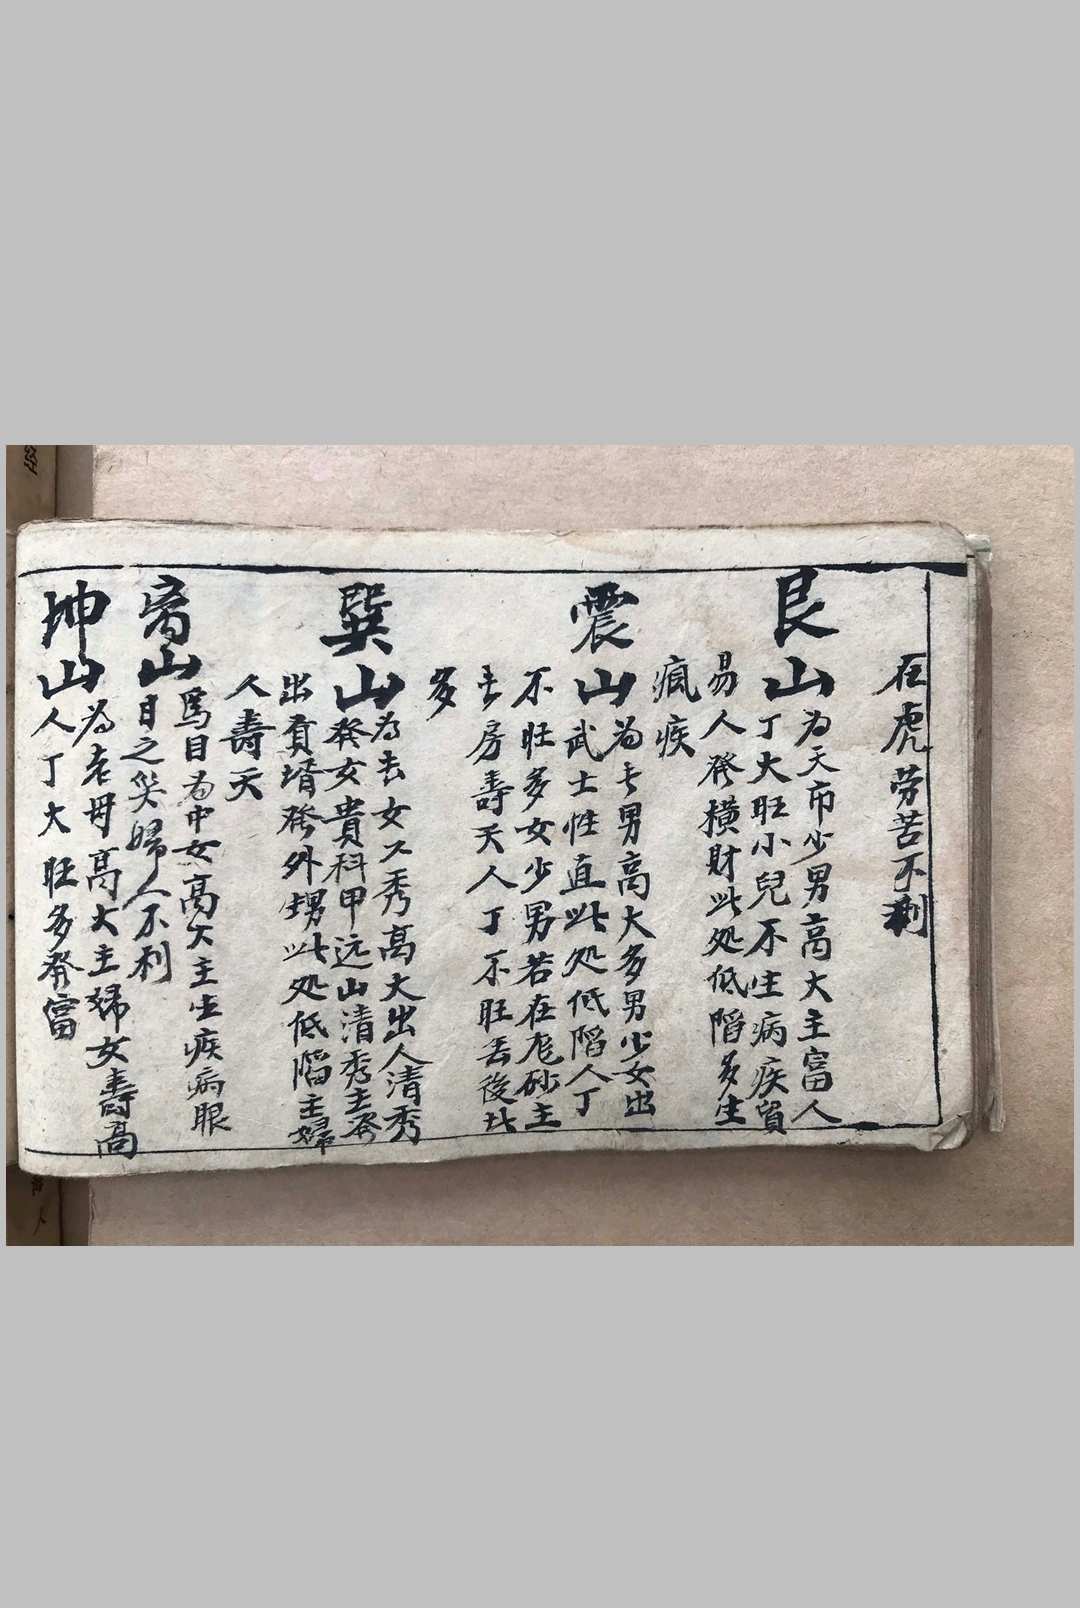 在虎劳苦不利
艮山
为天市少男高大主富人
丁大旺小兒不生病疾貿
易人發横財此处低陷多生
瘋疾
震山
为长男高大多男少女出
武士性直此处低陷人丁
不旺多女少男若在龙砂主
长房壽夭人丁不旺丢後
多
巽山
为长女又秀高大出人清秀
發女貴科甲远山清秀主
出貢壻發外甥此处低陷主婦
人壽夭
离山
馬目为中女高大主生疾病眼
目之災婦人不利
坤山
为老母高大主婦女壽高
人丁大旺多發富